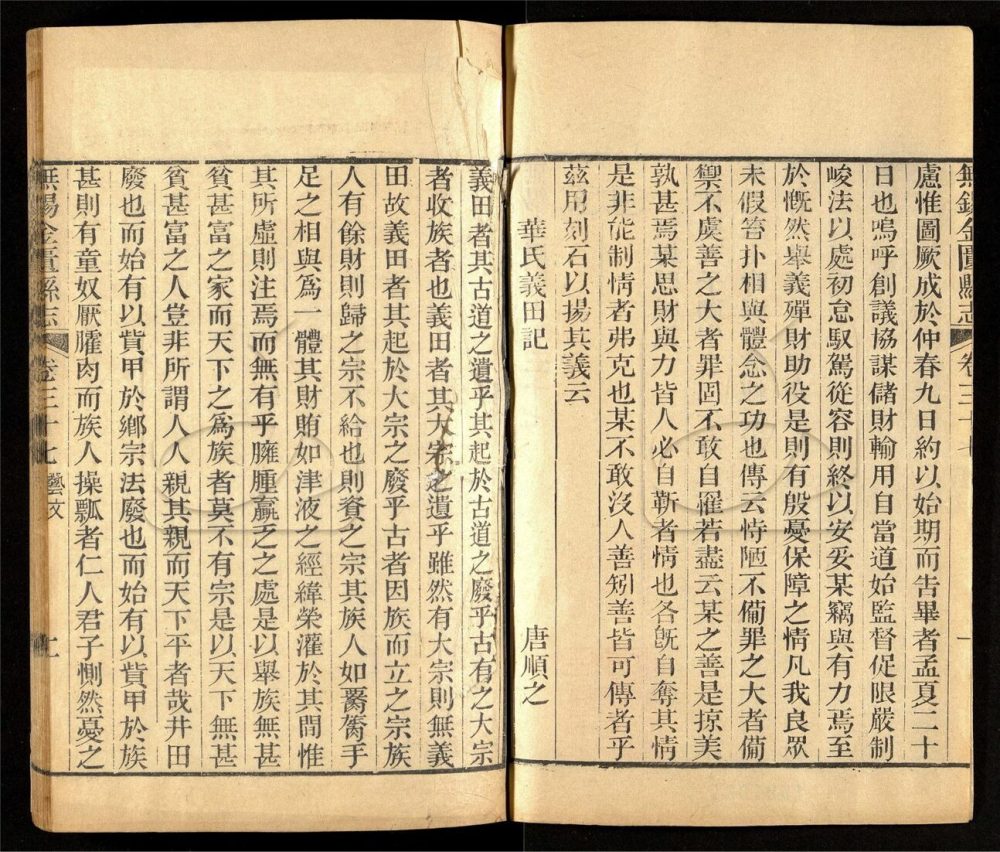 無錫金匱縣志 卷三十七
慮惟圖厥成於仲春九日約以始期而告畢者孟夏二十
日也嗚呼創議協謀儲財輸用自當道始監督促限嚴制
峻法以處初怠馭駕從容則終以安妥某竊與有力焉至
於慨然舉義殫財助役是則有殷憂保障之情凡我良眾
未假笞扑相與體念之功也傳云恃陋不備罪之大者備
禦不虞善之大者罪固不敢自罹若盡云某之善是掠美
孰甚焉某思財與力皆人必自靳者情也各旣自奪其情
是非能制情者弗克也某不敢沒人善矧善皆可傳者乎
兹用刻石以揚其義云
華氏義田記 唐順之
義田者其古道之遺乎其起於古道之廢乎古有之大宗
者收族者也義田者其大宗之遺乎雖然有大宗則無義
田故義田者其起於大宗之廢乎古者因族而立之宗族
人有餘財則歸之宗不給也則資之宗其族人如臂胷手
足之相與為一體其財賄如津液之經緯榮灌於其閒惟
其所虛則注焉而無有乎臃腫羸乏之處是以舉族無甚
貧甚富之家而天下之為族者莫不有宗是以天下無甚
貧甚富之人豈非所謂人人親其親而天下平者哉井田
廢也而始有以貲甲於鄉宗法廢也而始有以貲甲於族
甚則有童奴厭臛肉而族人操瓢者仁人君子惻然憂之
無錫金匱縣志 卷三十七 藝文